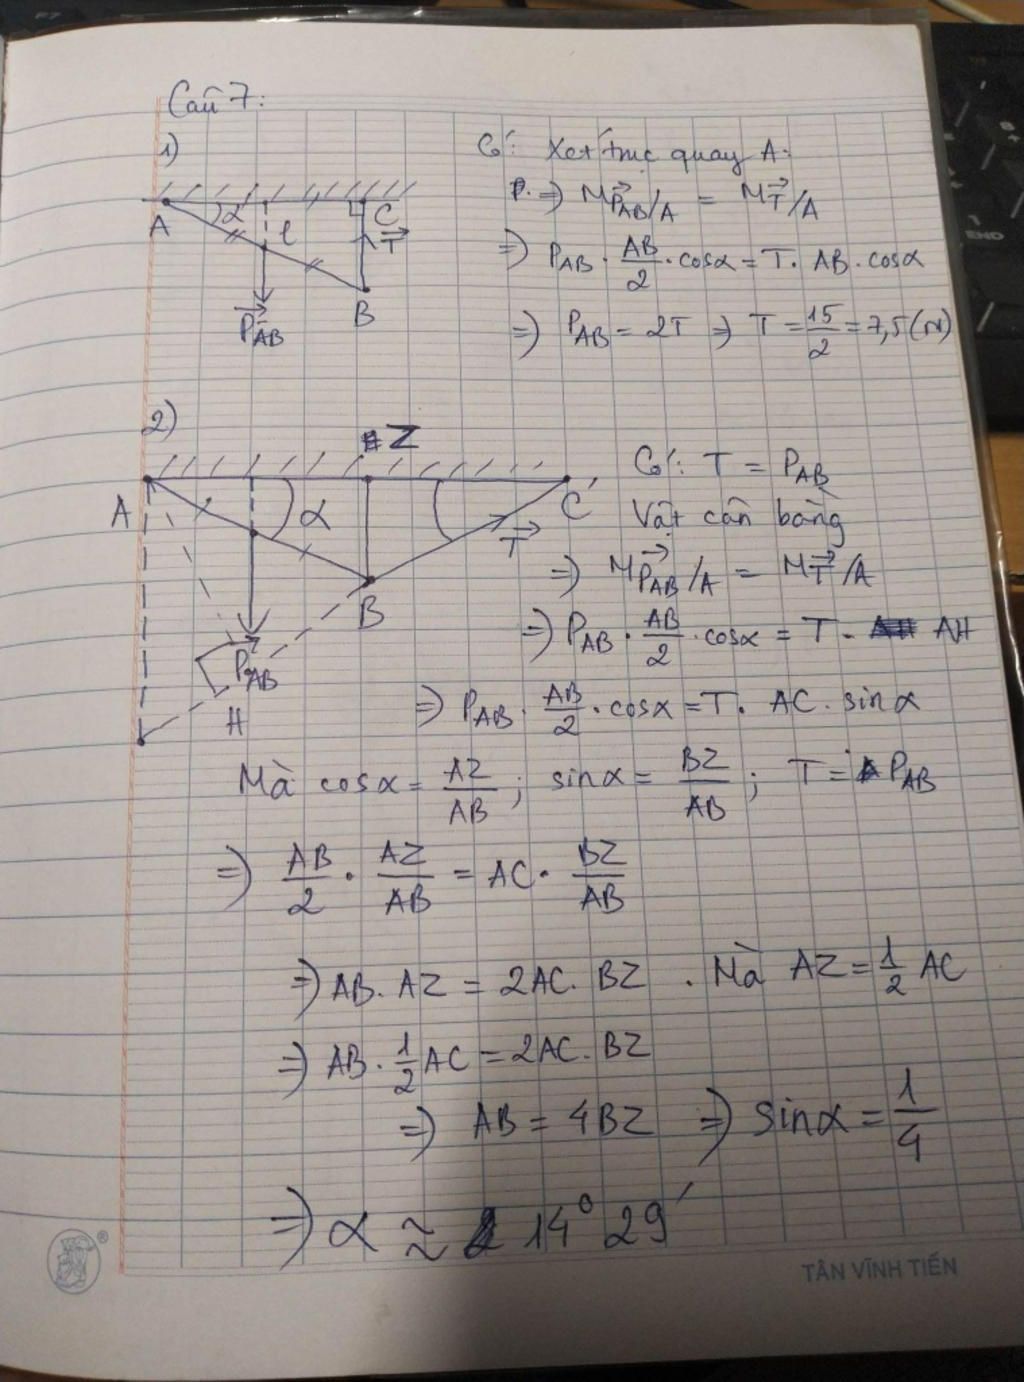 Câu 7:
1)
A α l C T→ B P→AB
Có: Xét trục quay A.
=> M P→AB/A = M T→/A
=> PAB · AB/2 · cosα = T · AB · cosα
=> PAB = 2T => T = 15/2 = 7,5 (N)
2)
Z
A α C T→ B P→AB H
Có: T = PAB
Vật cân bằng
=> M P→AB/A = M T→/A
=> PAB · AB/2 · cosα = T · AH
=> PAB · AB/2 · cosα = T · AC · sinα
Mà cosα = AZ/AB ; sinα = BZ/AB ; T = PAB
=> AB/2 · AZ/AB = AC · BZ/AB
=> AB · AZ = 2AC · BZ . Mà AZ = 1/2 AC
=> AB · 1/2 AC = 2AC · BZ
=> AB = 4BZ => sinα = 1/4
=> α ≈ 14° 29'
TÂN VĨNH TIẾN
END